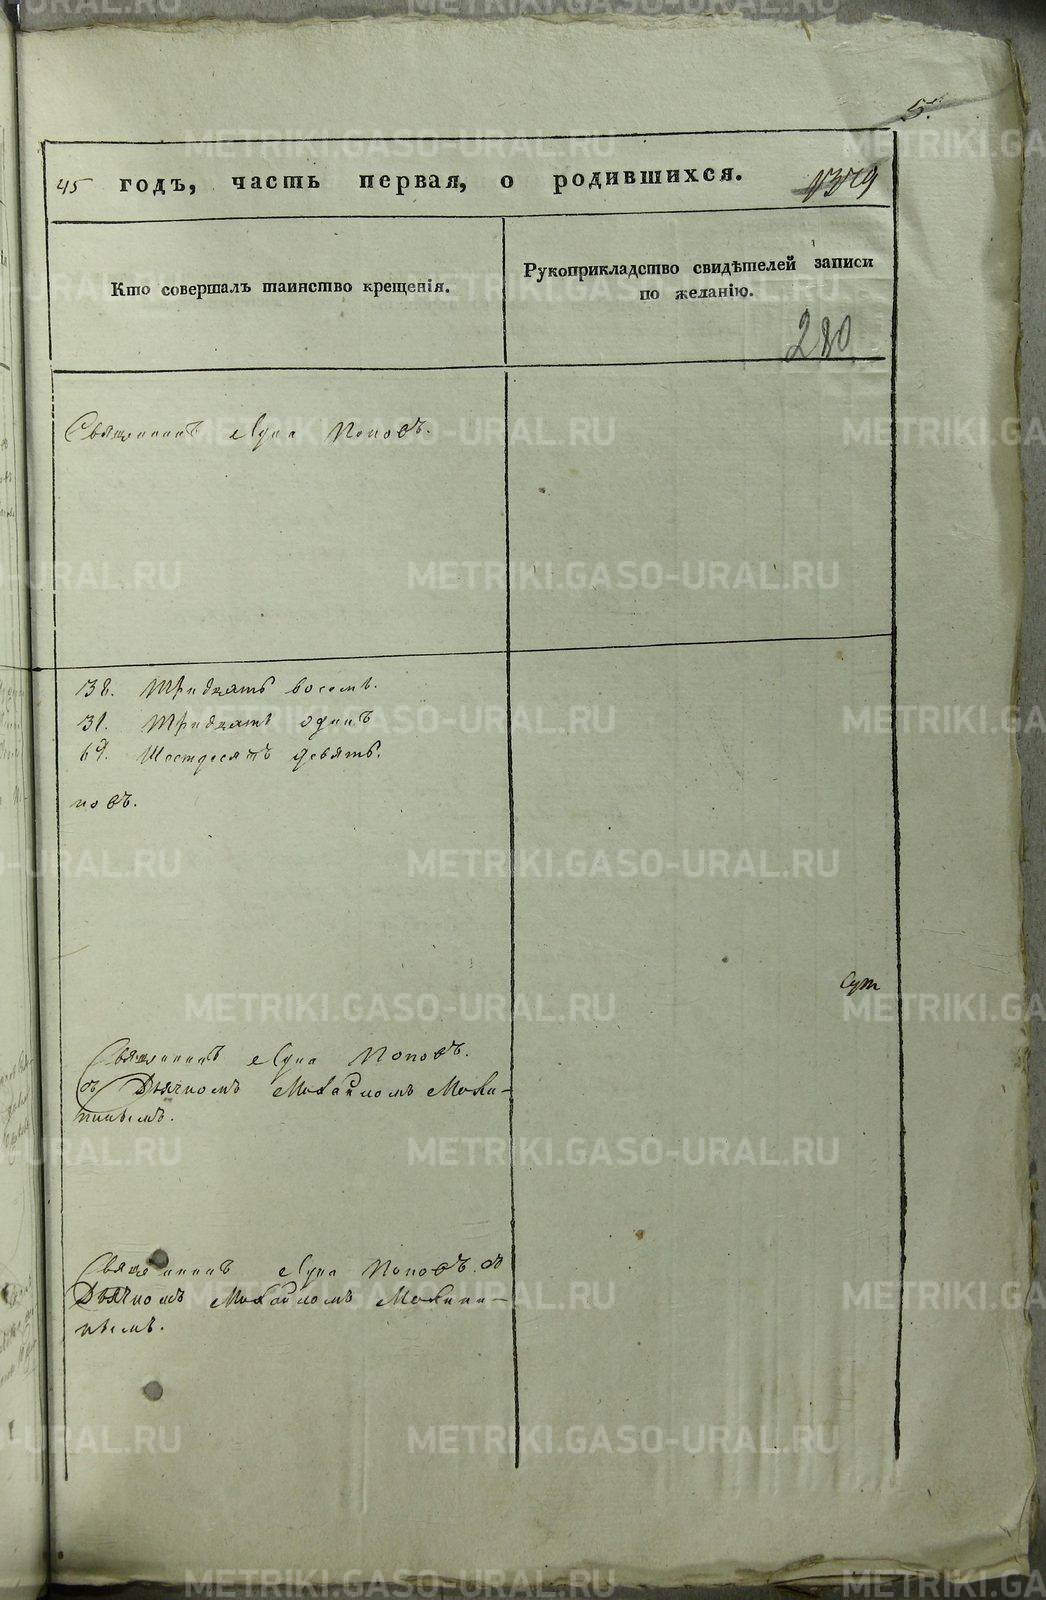 5.
45 годъ, часть первая, о родившихся. 1329
Кто совершалъ таинство крещенія.
Рукоприкладство свидѣтелей записи
по желанію.
280
Священникъ Лука Поповъ.
38. Тридцать восемь.
31. Тридцать одинъ
69. Шестдесятъ девять.
повъ.
Священникъ Лука Поповъ.
съ Дьячкомъ Михайломъ
Священникъ Лука Поповъ съ
Дьячкомъ Михайломъ
METRIKI.GASO-URAL.RU